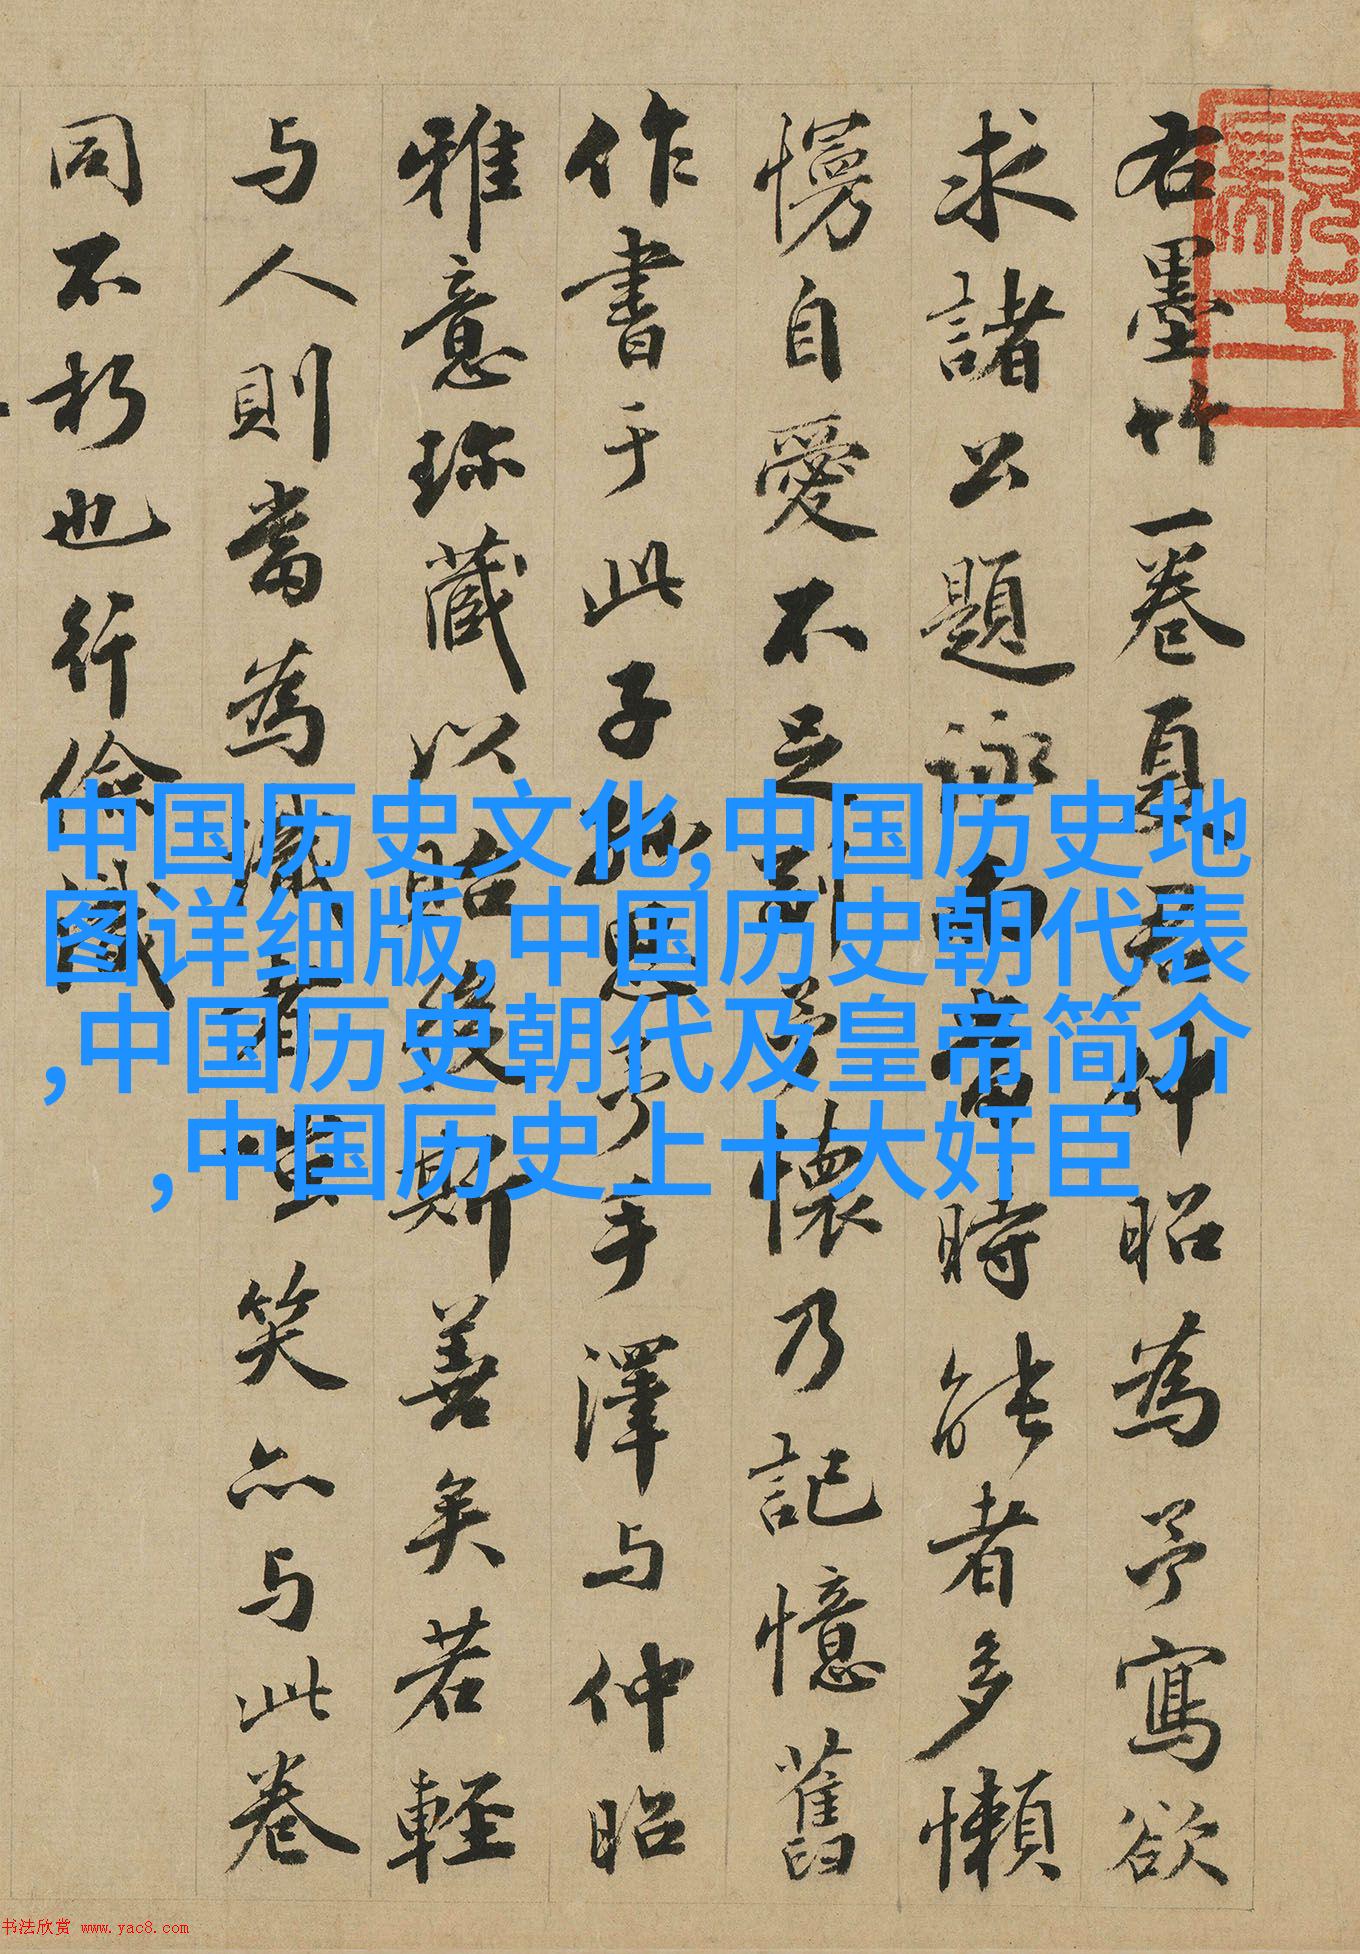 右墨竹一卷夏君仲昭為予寫欲
求諸公題詠而當時能者多懶
慢自愛不足副予懷乃記憶舊
作書于此子孫思予手澤与仲昭
雅意珎藏以貽後斯善矣若輕
与人則當為識者嗤笑亦与此卷
同不朽也行儉識
中国历史文化,中国历史地
图详细版,中国历史朝代表
,中国历史朝代及皇帝简介
,中国历史上十大奸臣
书法欣赏 www.yac8.com